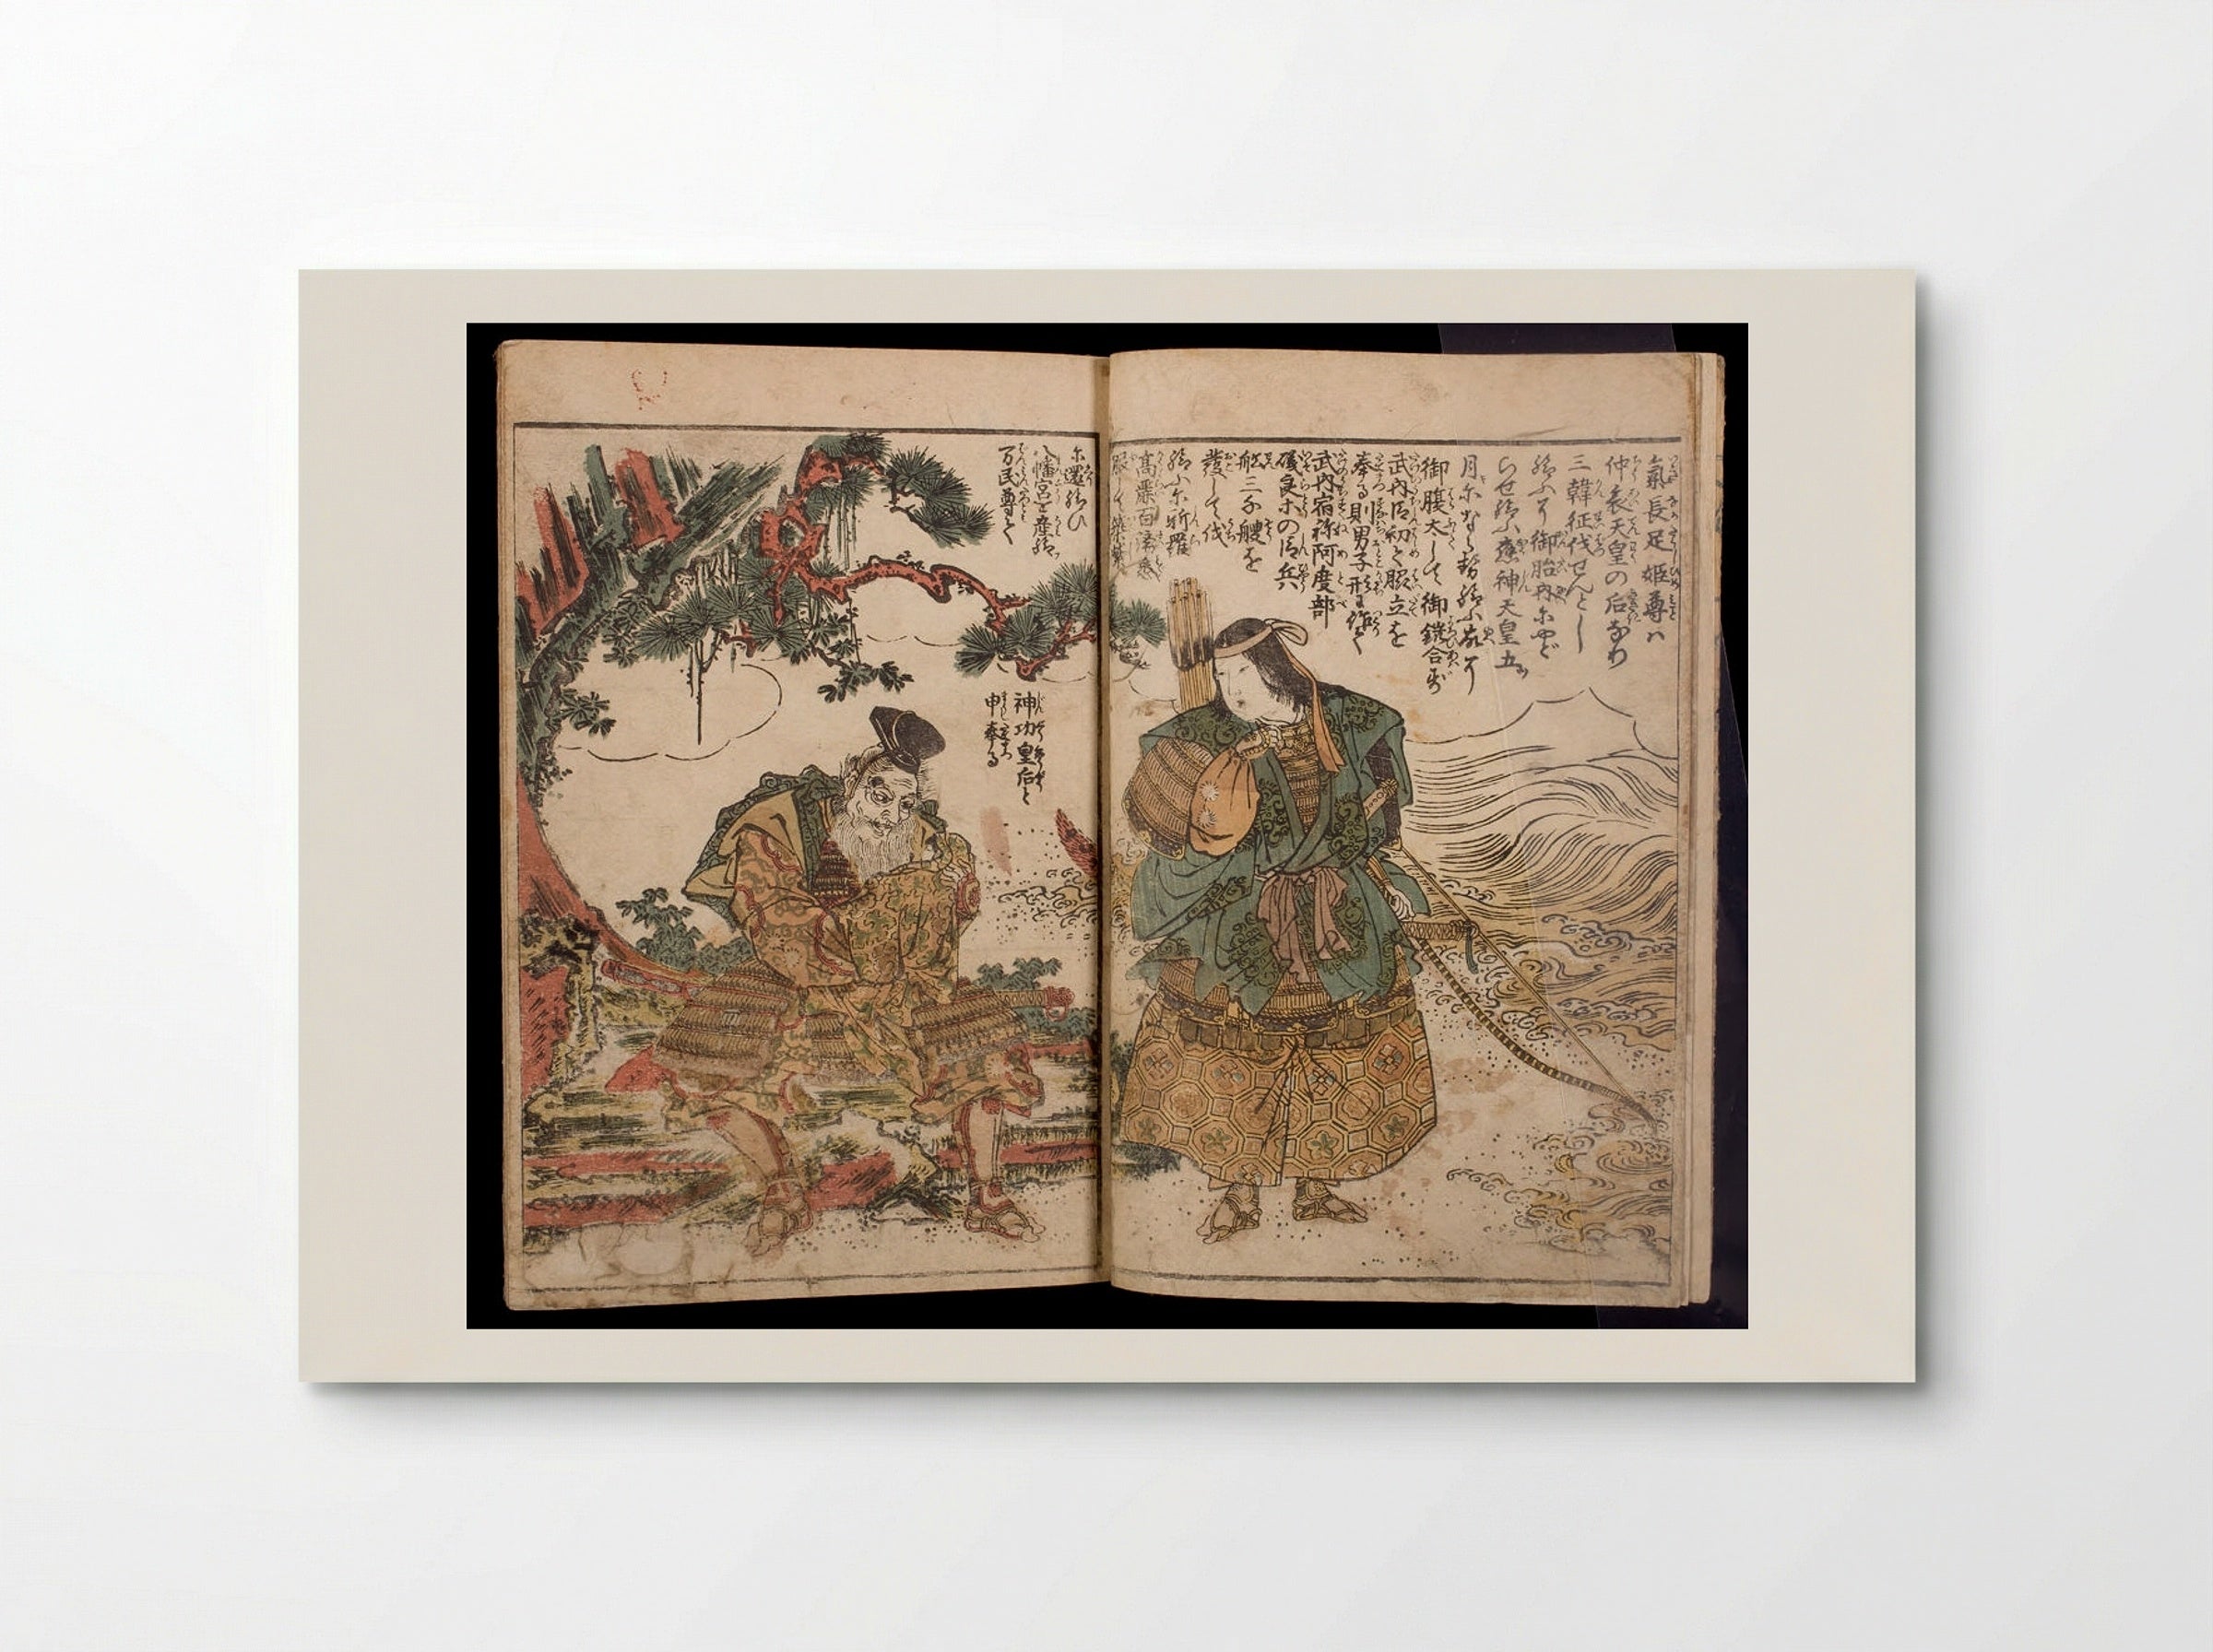 氣長足姫尊ハ
仲哀天皇の后なり
三韓征伐せんとし
給ふに御胎内にやど
らせ給ふ應神天皇五
月になら勢給ふ故に
御腹太しく御鎧合ず
武内臣初と脇立を
奉る則男子形に作く
武内宿祢阿度部
磯良木の臣兵
舩三千艘を
發して伐
給ふに新羅
高麗百済悉
服して筑紫
に還給ひ
八幡宮を産給
万民尊で
神功皇后と
申奉る